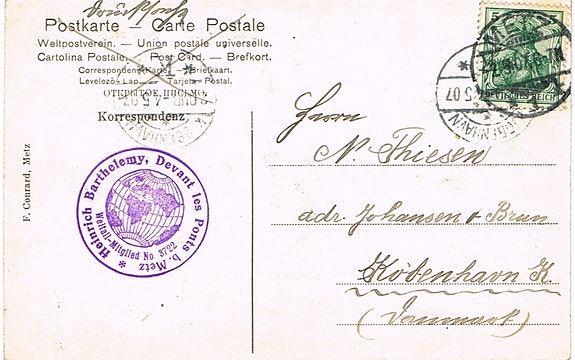 Drucksache
Postkarte — Carte Postale
Weltpostverein. — Union postale universelle.
Cartolina Postale. Post Card. — Brefkort.
Correspondenz-Karte. Briefkaart.
Levelező-Lap. — Tarjeta-Postal.
ОТКРЫТОЕ ПИСЬМО.
Korrespondenz.
METZ
DEUTSCHES REICH
KJØBENHAVN
4.5.07
5 07
KJØBENHAVN
F. Conrard, Metz
Heinrich Barthelemy, Devant les Ponts b. Metz *
Weltall-Mitglied No 3722
Herrn
N. Thiesen
adr. Johansen & Brun
København K.
(Danmark)